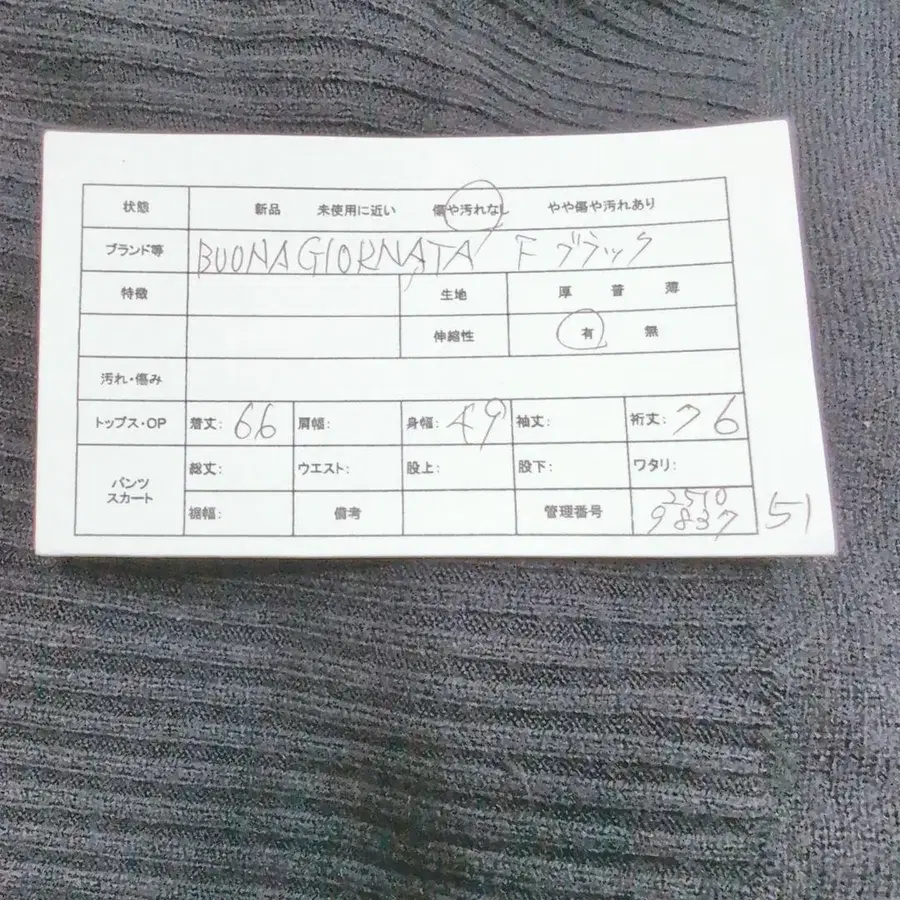 状態 新品 未使用に近い 傷や汚れなし やや傷や汚れあり
ブランド等 BUONA GIORNATA F ブラック
特徴 生地 厚 普 薄
伸縮性 有 無
汚れ・傷み
トップス・OP 着丈: 66 肩幅: 身幅: 49 袖丈: 裄丈: 76
パンツ スカート 総丈: ウエスト: 股上: 股下: ワタリ:
裾幅: 備考 管理番号 2510 9837 51